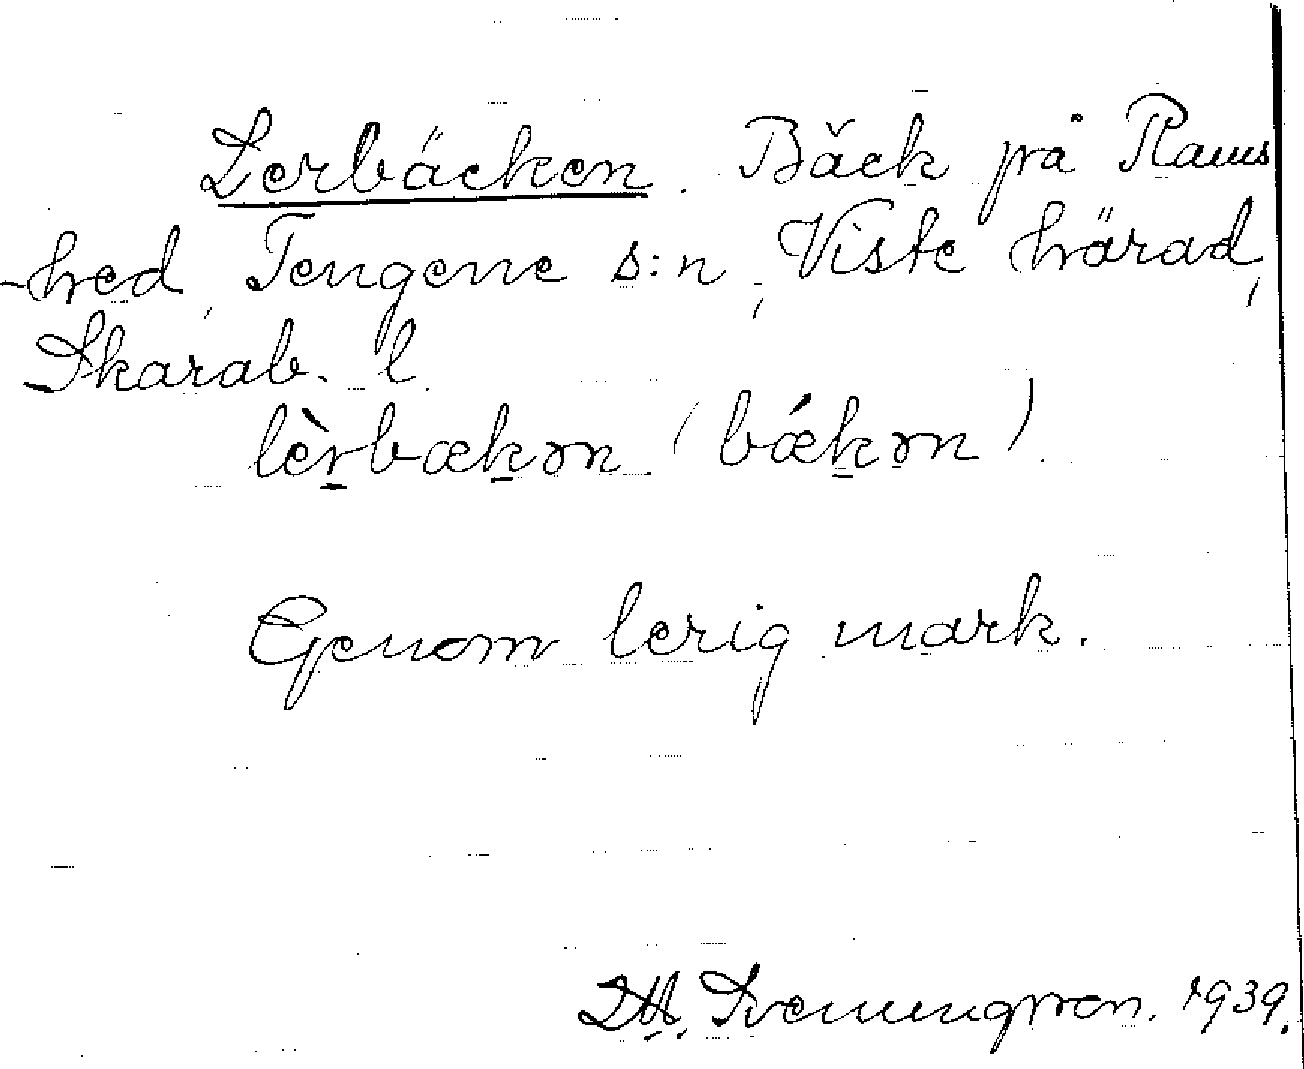 Lerbäcken. Bäck på Rams
-hed, Tengene s:n, Viste härad,
Skarab. l.
lèrbækən (bǽkən).
Genom lerig mark.
Svenungsson. 1939.